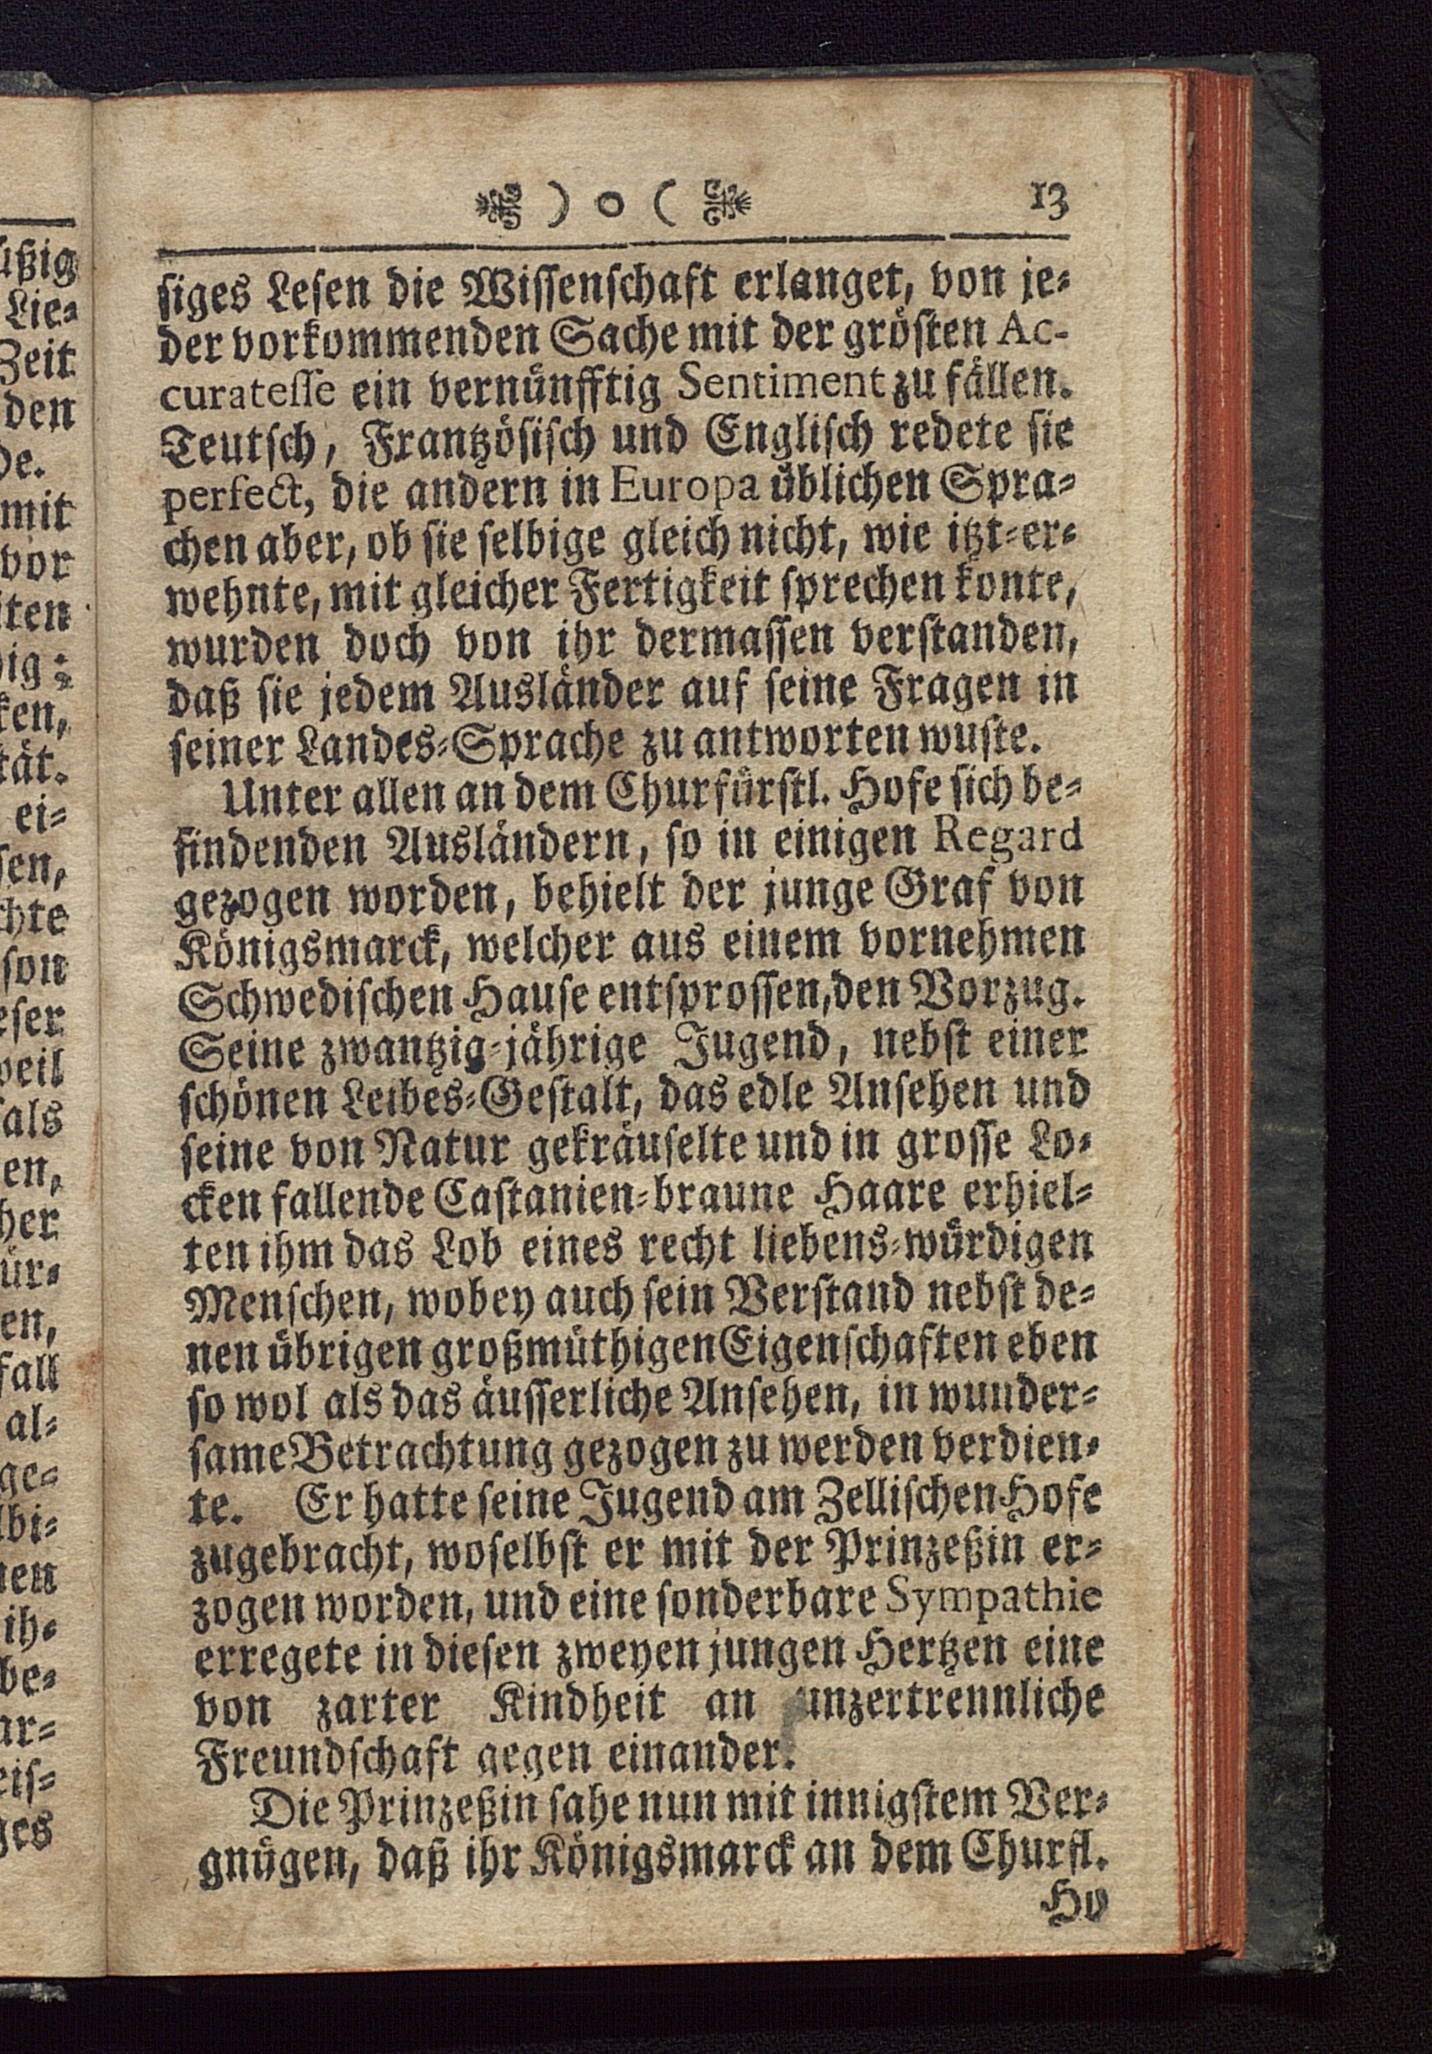 ) o ( 13
siges Lesen die Wissenschaft erlanget, von je-
der vorkommenden Sache mit der grösten Ac-
curatesse ein vernünfftig Sentiment zu fällen.
Teutsch, Frantzösisch und Englisch redete sie
perfect, die andern in Europa üblichen Spra-
chen aber, ob sie selbige gleich nicht, wie itzt-er-
wehnte, mit gleicher Fertigkeit sprechen konte,
wurden doch von ihr dermassen verstanden,
daß sie jedem Ausländer auf seine Fragen in
seiner Landes-Sprache zu antworten wuste.
Unter allen an dem Churfürstl. Hofe sich be-
findenden Ausländern, so in einigen Regard
gezogen worden, behielt der junge Graf von
Königsmarck, welcher aus einem vornehmen
Schwedischen Hause entsprossen, den Vorzug.
Seine zwantzig-jährige Jugend, nebst einer
schönen Leibes-Gestalt, das edle Ansehen und
seine von Natur gekräuselte und in grosse Lo-
cken fallende Castanien-braune Haare erhiel-
ten ihm das Lob eines recht liebens-würdigen
Menschen, wobey auch sein Verstand nebst de-
nen übrigen großmüthigen Eigenschaften eben
so wol als das äusserliche Ansehen, in wunder-
same Betrachtung gezogen zu werden verdien-
te. Er hatte seine Jugend am Zellischen Hofe
zugebracht, woselbst er mit der Prinzeßin er-
zogen worden, und eine sonderbare Sympathie
erregete in diesen zweyen jungen Hertzen eine
von zarter Kindheit an unzertrennliche
Freundschaft gegen einander.
Die Prinzeßin sahe nun mit innigstem Ver-
gnügen, daß ihr Königsmarck an dem Churfl.
Ho